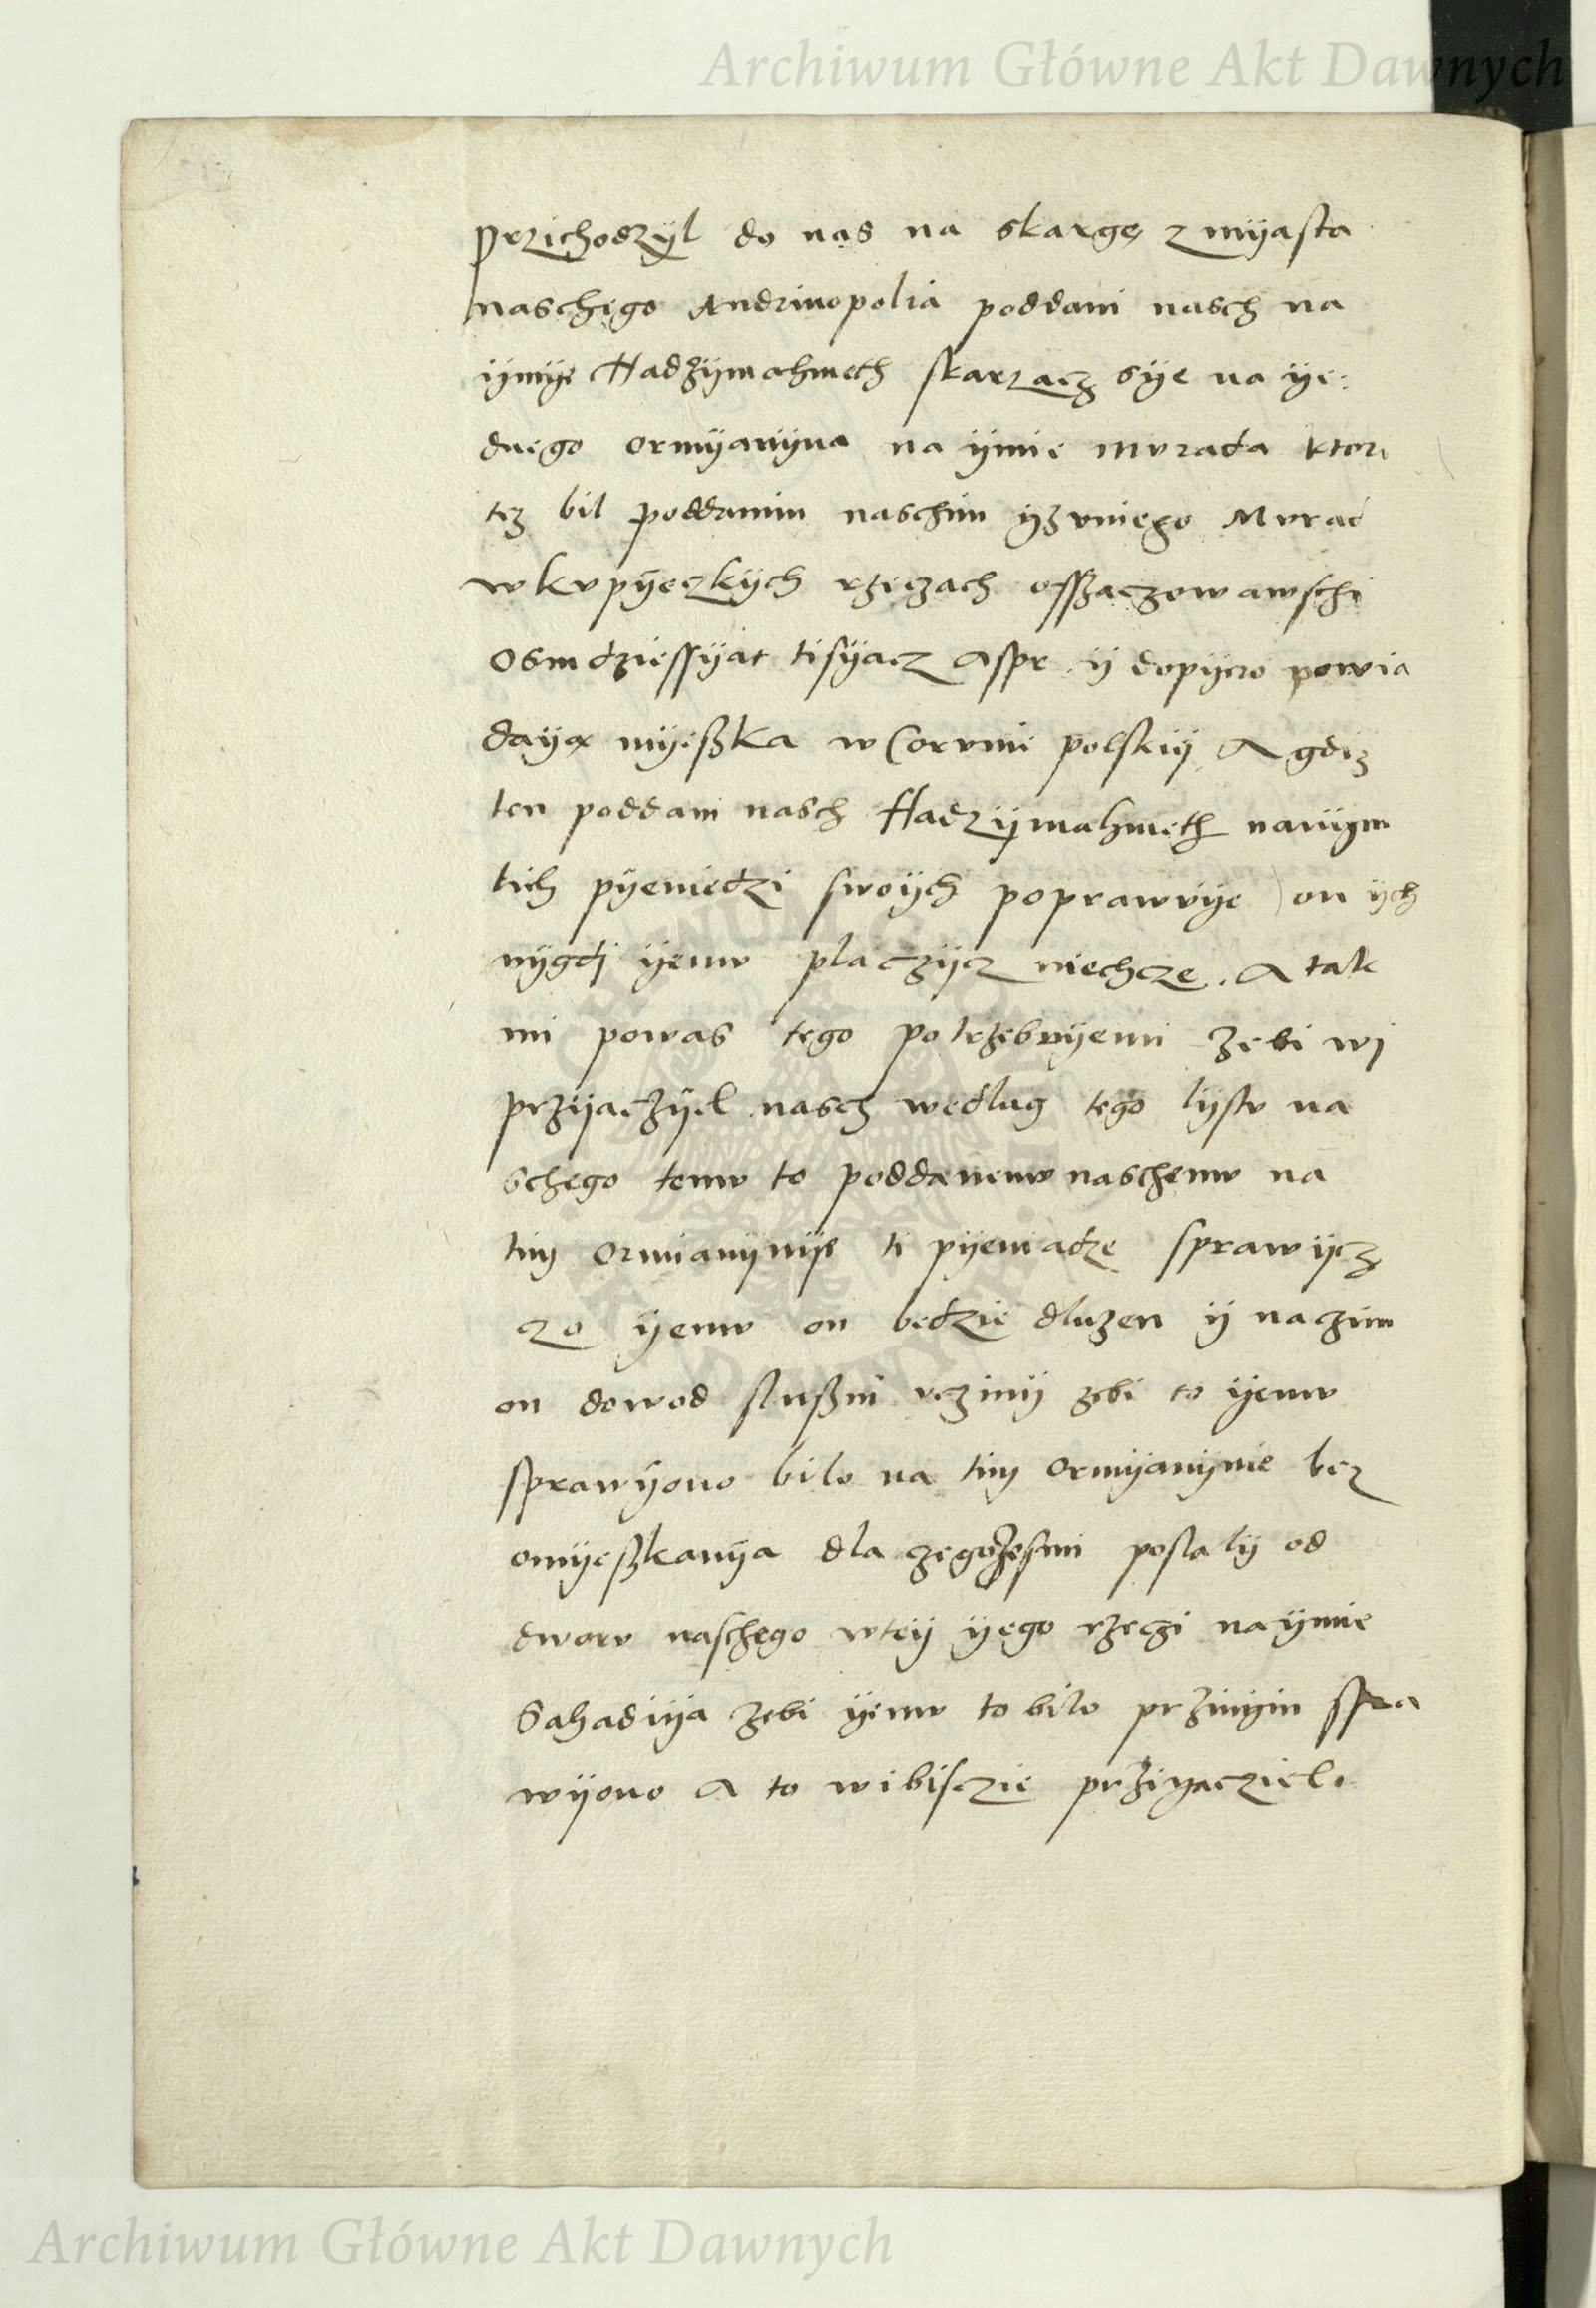 Archiwum Główne Akt Dawnych
Przichodzÿl do nas na skargę z mÿasta
naschego Andrinopolia poddani nasch na
ÿmÿe Hadzÿmahmeth skarzacz sÿe na ÿe:
dnego ormÿanÿna na ÿmie Mvrada ktori
tez bil poddanim naschim ÿz vniego Mvrad
w kvpÿeczkÿch rzeczach osszaczowawschi
osmdziessÿat tisÿacz aspr ÿ dopÿero powia
daÿa mÿeßka w Corvnie polskiÿ A gdiz
ten poddani nasch Hadzÿmahmeth nanÿm
tich pÿeniedzi swoÿch poprawvÿe on ÿch
nÿgdi ÿemv placzÿcz niechcze. A tak
mi powas tego potrzebvÿemi zebi wi
przÿaczÿel nasch wedlug tego lÿstv na
schego temv to poddanemv naschemv na
tim Ormianÿnÿe ti pÿeniadze sprawÿcz
czo ÿemv on bedzie dluzen ÿ naczim
on dowod slußni vczinÿ zebi to ÿemv
sprawÿono bilo na tim Ormÿanÿnie bez
omÿeßkanÿa dla czegozesmi poslalÿ od
dworv naschego wteÿ ÿego rzeczi na ÿmie
Sahadiÿa zebi ÿemv to bilo przinÿm spra
wÿono A to wibisczie przÿaciel.
Archiwum Główne Akt Dawnych